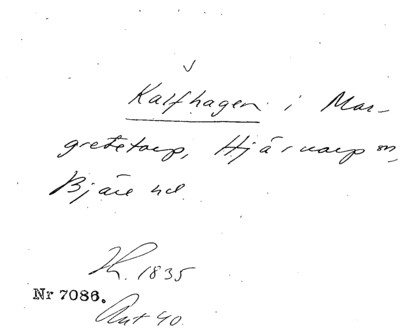 Kalfhagen i Mar-
gretetorp, Hjärnarp sn,
Bjäre hd.
Kt. 1835
Nr 7086.
Akt 40